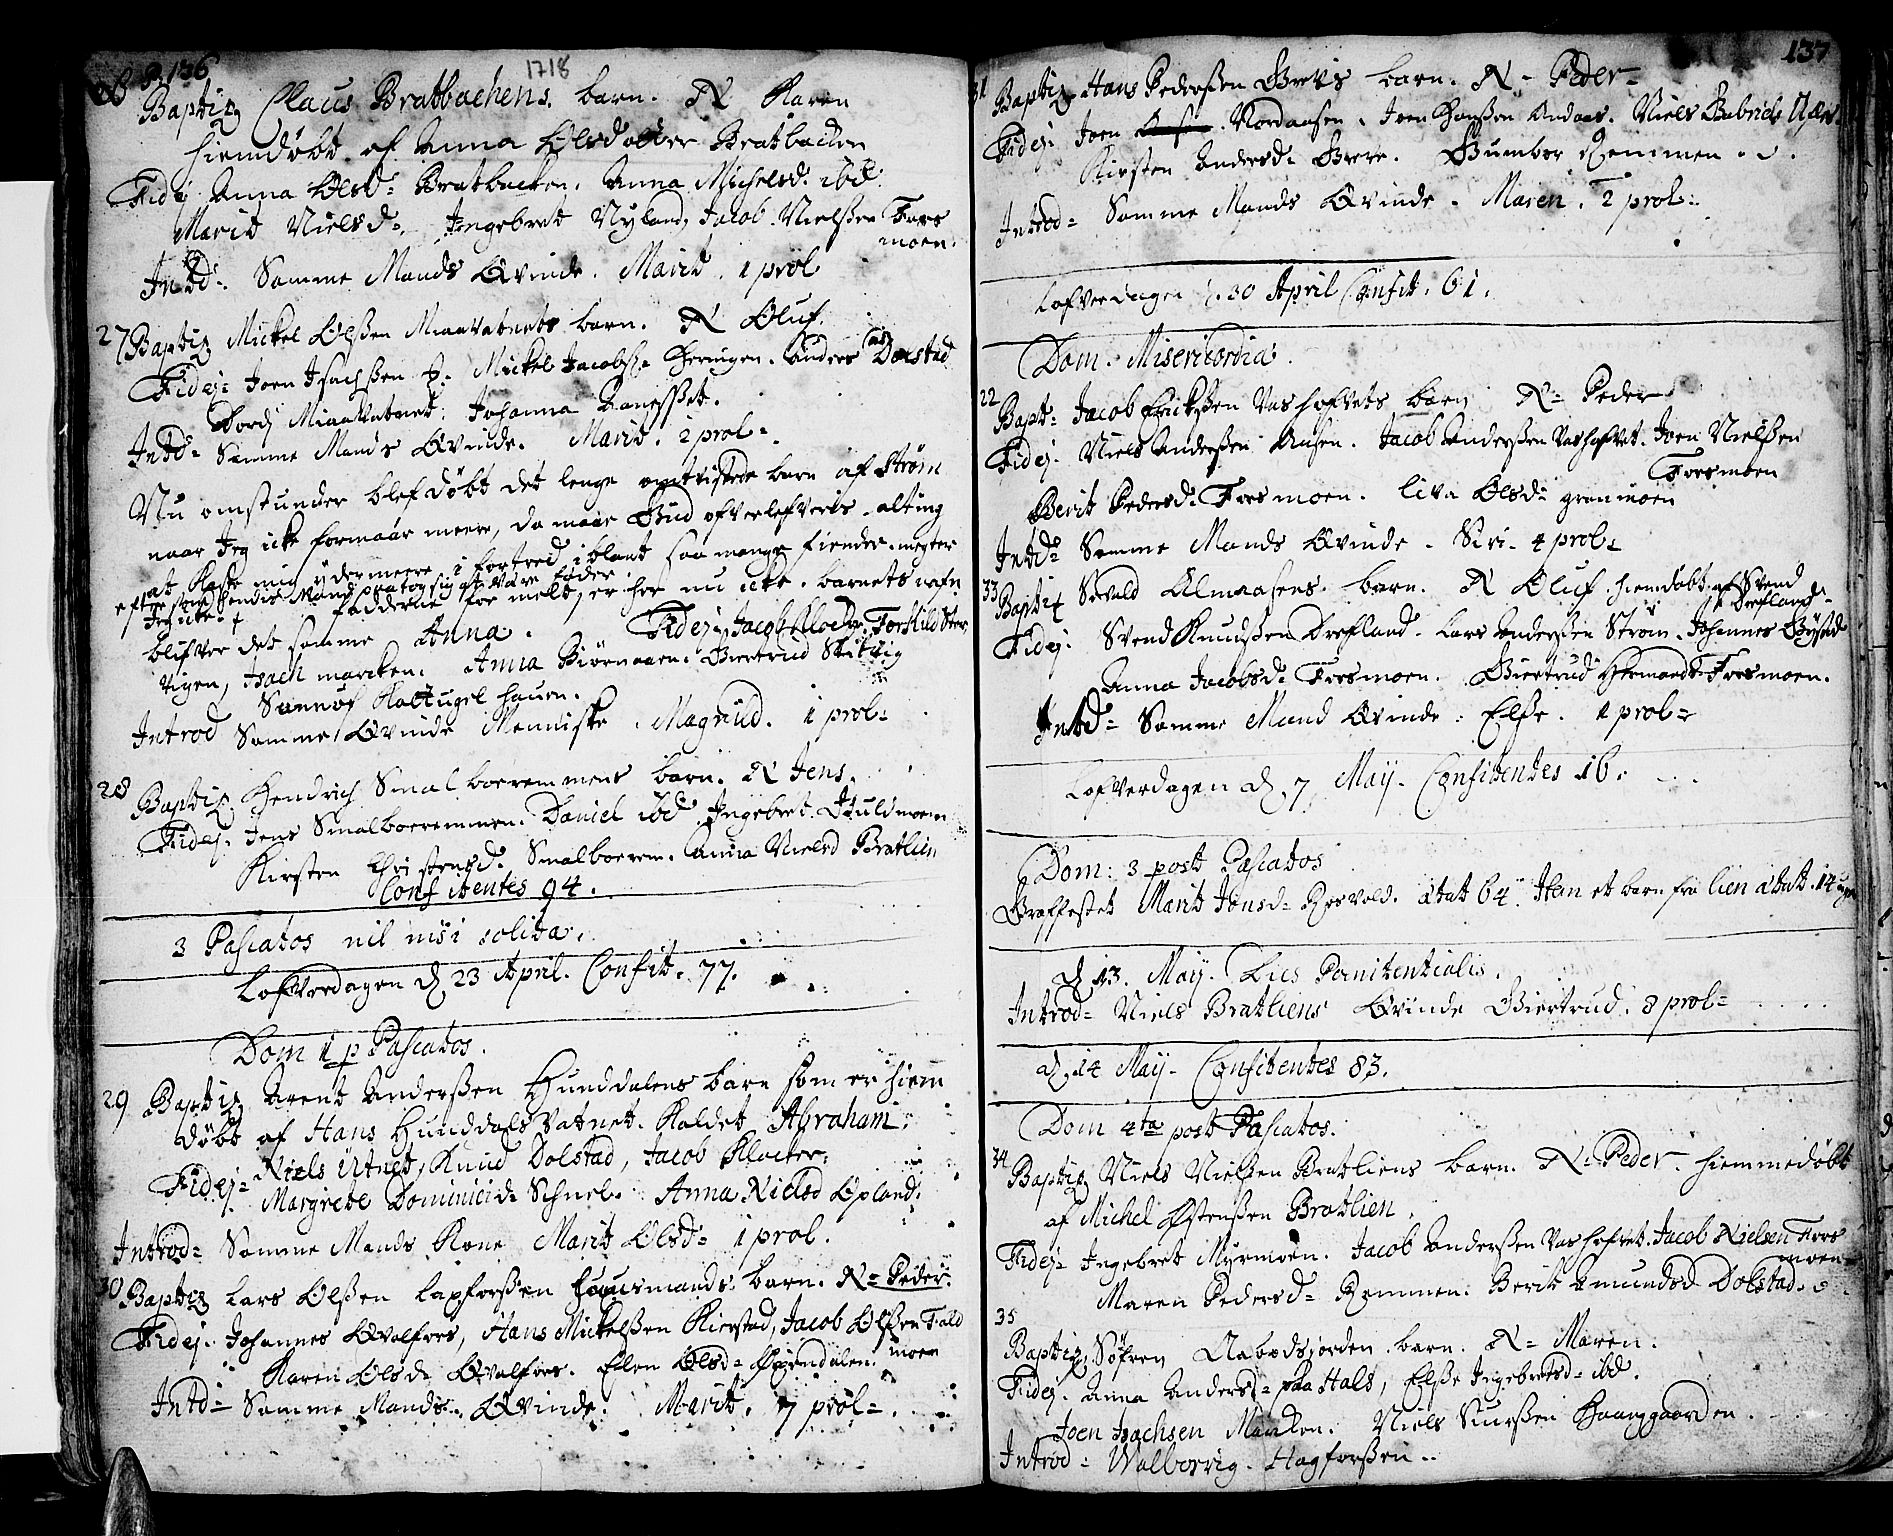 p. 136
1718
Baptiz Claus Bratbachens barn. N Karen
hiemdøbt af Anna Olsdatter Bratbacken
Fidej Anna Olsd= Bratbacken. Anna Michelsd. ibid
Marit Nielsd=, Ingebret Nyland, Jacob Nielsßen Fors
moen.
Intd: Samme Mands Qvinde. Marit. 1 prol
27 Baptiz Mickel Olßen Miaavatnets barn. N Oluf.
Fidej= Joen Isachßen Mickel Jacobs. Herringen. Anders Dolstad
Bord Miaavatnet. Johanna
Intd= Samme Mands Qvinde. Marit. 2 prol=.
Nu omstunder blef døbt det lenge omtvistede barn af Strøm
naar Jeg icke formaar meere, da maae Gud ofverlefveris alting
at kaste mig ydermeere i fortred iblant saa mange fiender.
efter som hendis Mand paatog sig at være fader
fadderne for meldt, er her nu icke. barnets nafn
blifver det samme Anna. Fidej: Jacob Klocker Torkild Ster
vigen, Isach marcken. Anna Biørnaaen. Giertrud Skitvig
Sunnøf
Introd Samme Qvinde Menniske. Magnild. 1 prol=
28 Baptiz Hendrich Smalboeremmens barn. N Jens.
Fidej. Jens Smalboeremmen. Daniel ibd Ingebret Stuldmoen
Kirsten Christensd. Smalboerem. Anna Nielsd Bratlien
Confitentes 94.
3 Pascatos nil nisi solita.
Lofverdagen d. 23 April. Confit. 77.
Dom 1 p Pascatos.
29 Baptiz Arent Anderßen Hunddalens barn som er hiem
døbt af Hans Hunddals Vatnet. Kaldet Abraham.
Fidej= Niels Utnes, Knud Dolstad, Jacob Klocker.
Margrete Dominici d= Schnel. Anna Nielsd Opland.
Introd= Samme Mands Kone Marit Olsd= 1 prol.
30 Baptiz Lars Olßen Lapforßen huusmands barn. N= Peder.
Fidej. Johannes Qvalfors, Hans Mickelßen Kierstad, Jacob Olßen Fald
moen
Karen Olsd Qvalfors. Elen Olsd= Øxendalen.
Intd= Samme Mands Qvinde. Marit. 7 prol=.
137
31 Baptiz Hans Pederßen Greis barn. N= Peder=
Fidej. Joen Nordaasen. Joen Hansßen Andaas. Niels Gabriels
Kirsten Andersd= Gumbor Remmen.
Introd= Samme Mands Qvinde. Maren. 2 prol=.
Lofverdagen d. 30 April Confit. 61.
Dom. Misericordia.
22 Bapt= Jacob Erickßen Vashofvets barn N= Peder
Fidej. Niels Anderßen Aasen. Jacob Anderßen Vashofvet. Joen Nielßen
Forsmoen
Berit Pedersd. Forsmoen. Liva Olsd= granmoen
Intd= Samme Mands Qvinde. Siri. 4 prol=
33 Baptiz Sivald Almaasens barn. N Oluf hiemdøbt af Svend
Drefland.
Fidej. Svend Knudßen Drefland. Lars Anderßen Strøm. Johannes Bysted
Anna Jacobsd= Forsmoen. Giertrud Hermandsd Forsmoen.
Intd= Samme Mand Qvinde. Elße. 1 prol=
Lofverdagen d. 7 Maij. Confitentes 16.
Dom: 3 post Pascatos
Graffestet Marit Jonsd= Rosvold. ætat 64. Item et barn fra lien ætat. 14 uger
d. 13. Maij. Dies Pænitentialis.
Introd= Niels Bratliens Qvinde Giertrud. 8 prol=
d. 14 Maij. Confitentes 83.
Dom 4ta post Pascatos.
34 Baptiz Niels Nielßen Bratliens barn. N= Peder. hiemmedøbt
af Michel Østenßen Bratlien.
Fidej= Ingebret Myrmoen. Jacob Anderßen Vashofvet. Jacob Nielsen Fors
moen
Maren Pedersd= Remmen. Berit Amundsd Dolstad.
35
Baptiz Søfren Nabodsjorden barn. N= Maren.
Fidej. Anna Andersd= paa Hals, Elße Ingebretsd= ibd.
Joen Isachsen Marcken. Niels Siurßen Haaggaarden.
Introd= Walborrig. Hagforßen..